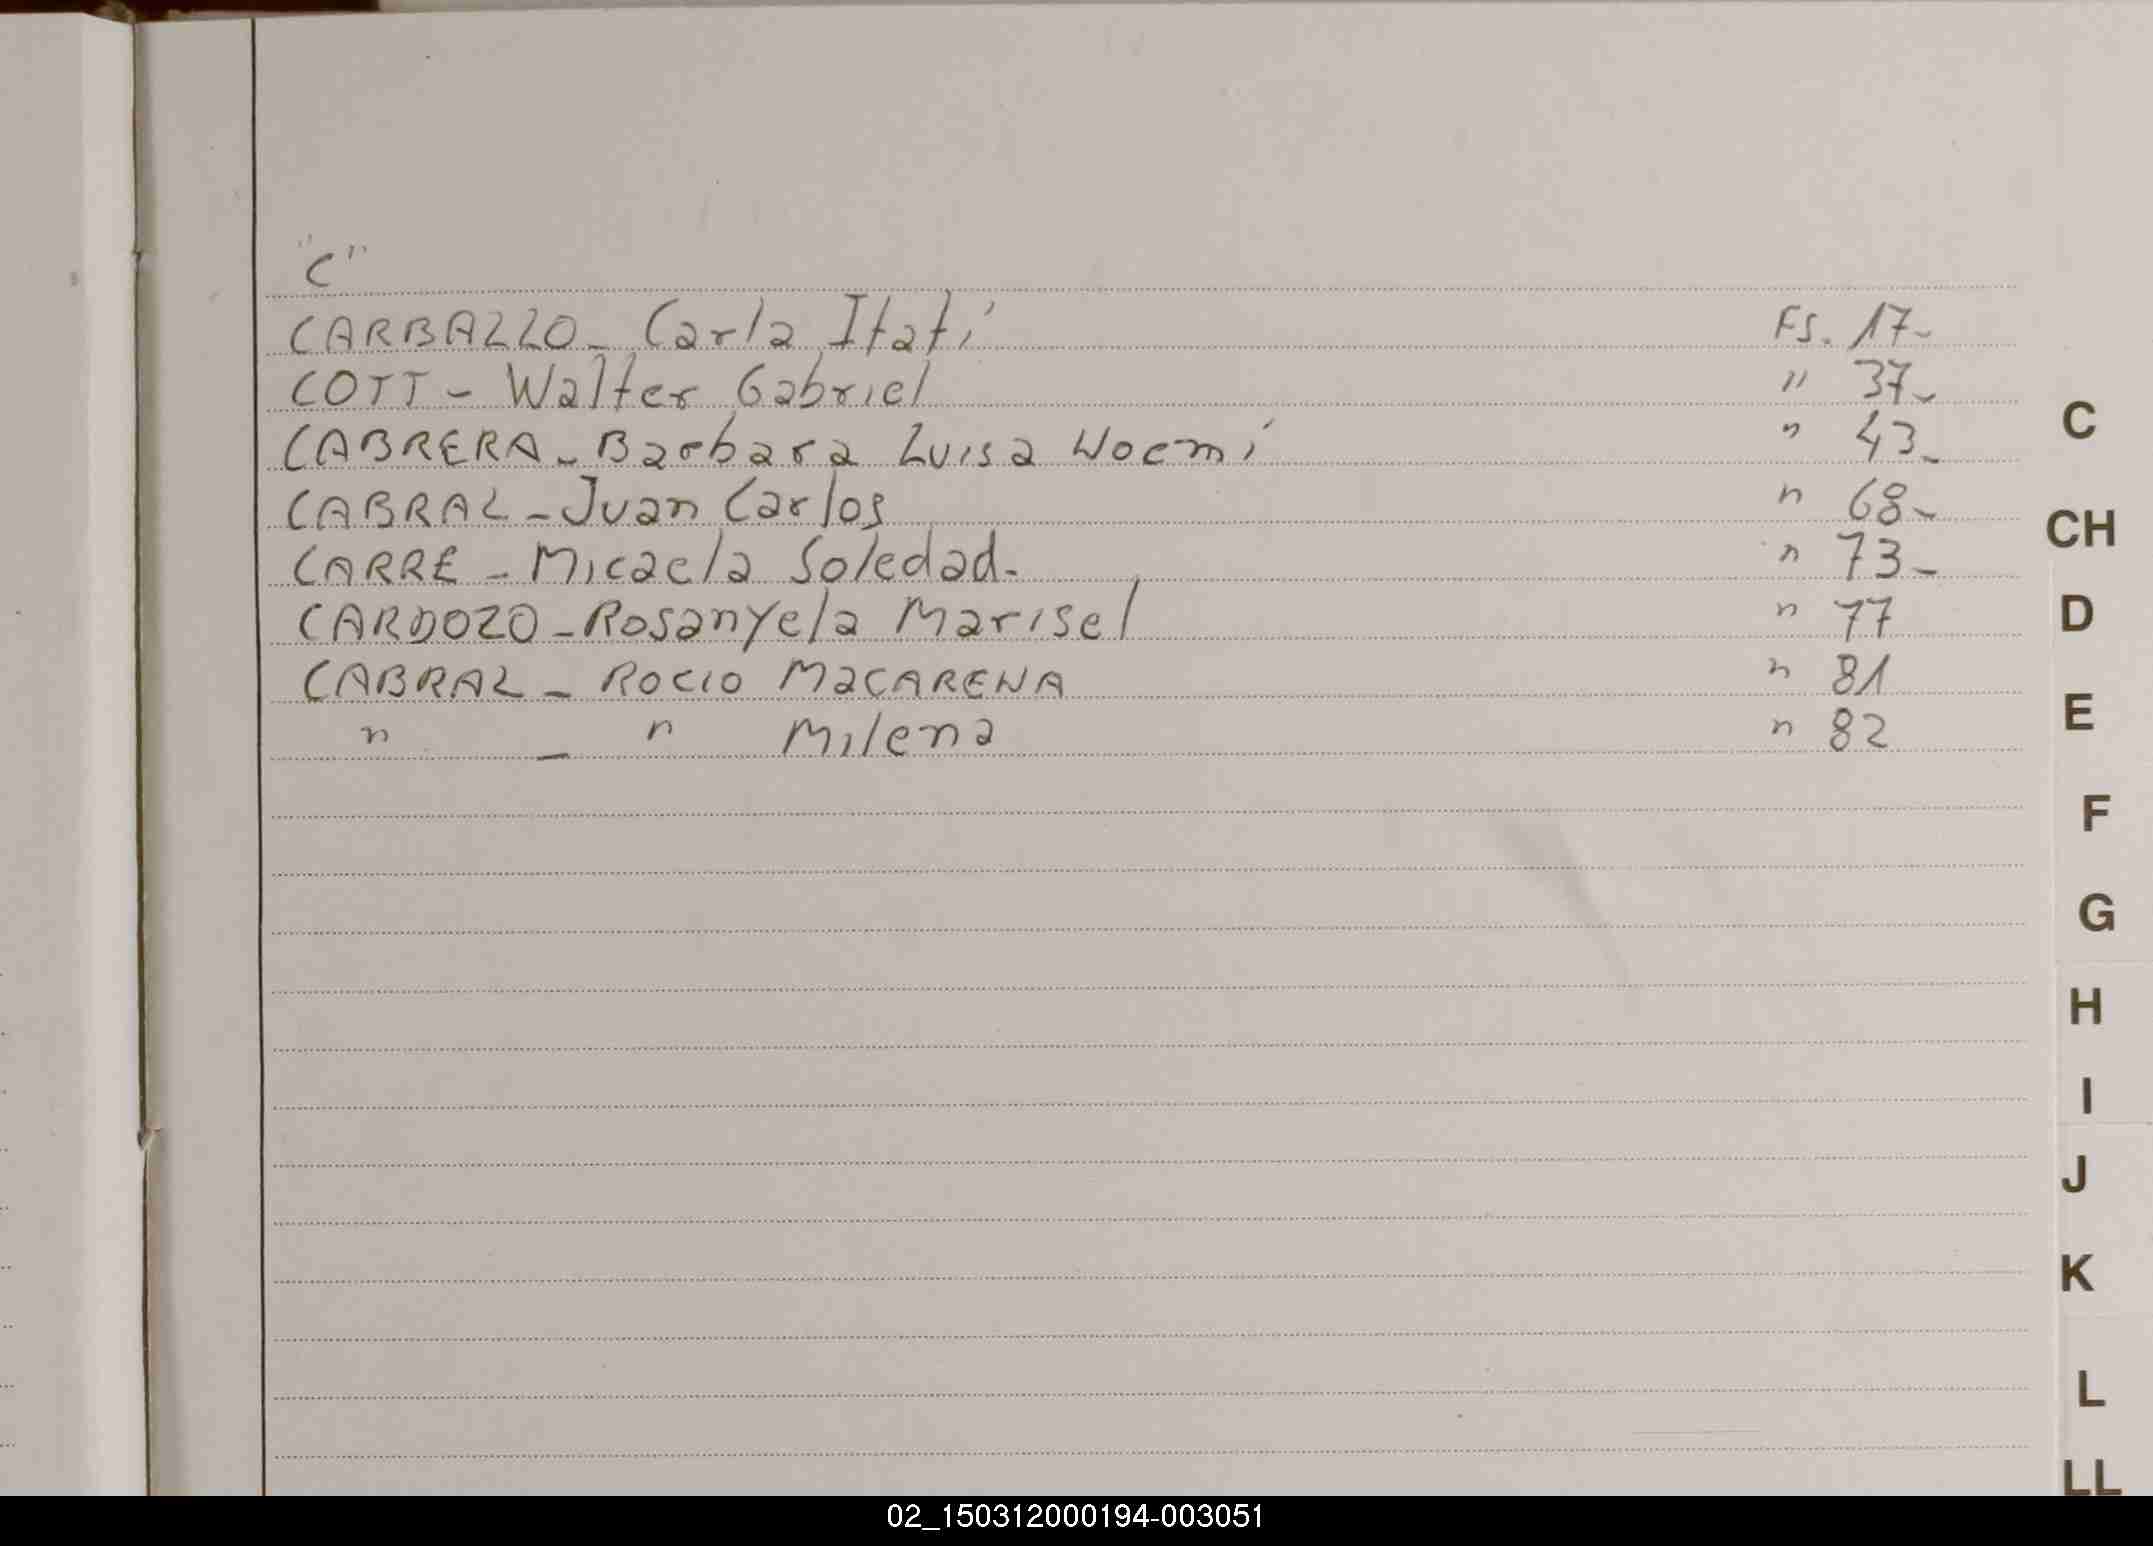 "C"
CARBALLO - Carla Itatí Fs. 17-
COTT - Walter Gabriel " 37-
CABRERA - Barbara Luisa Noemí " 43-
CABRAL - Juan Carlos " 68-
CARRE - Micaela Soledad. " 73-
CARDOZO - Rosanyela Marisel " 77
CABRAL - ROCIO MaCARENA " 81
" - " Milena " 82
C
CH
D
E
F
G
H
I
J
K
L
LL
02_150312000194-003051